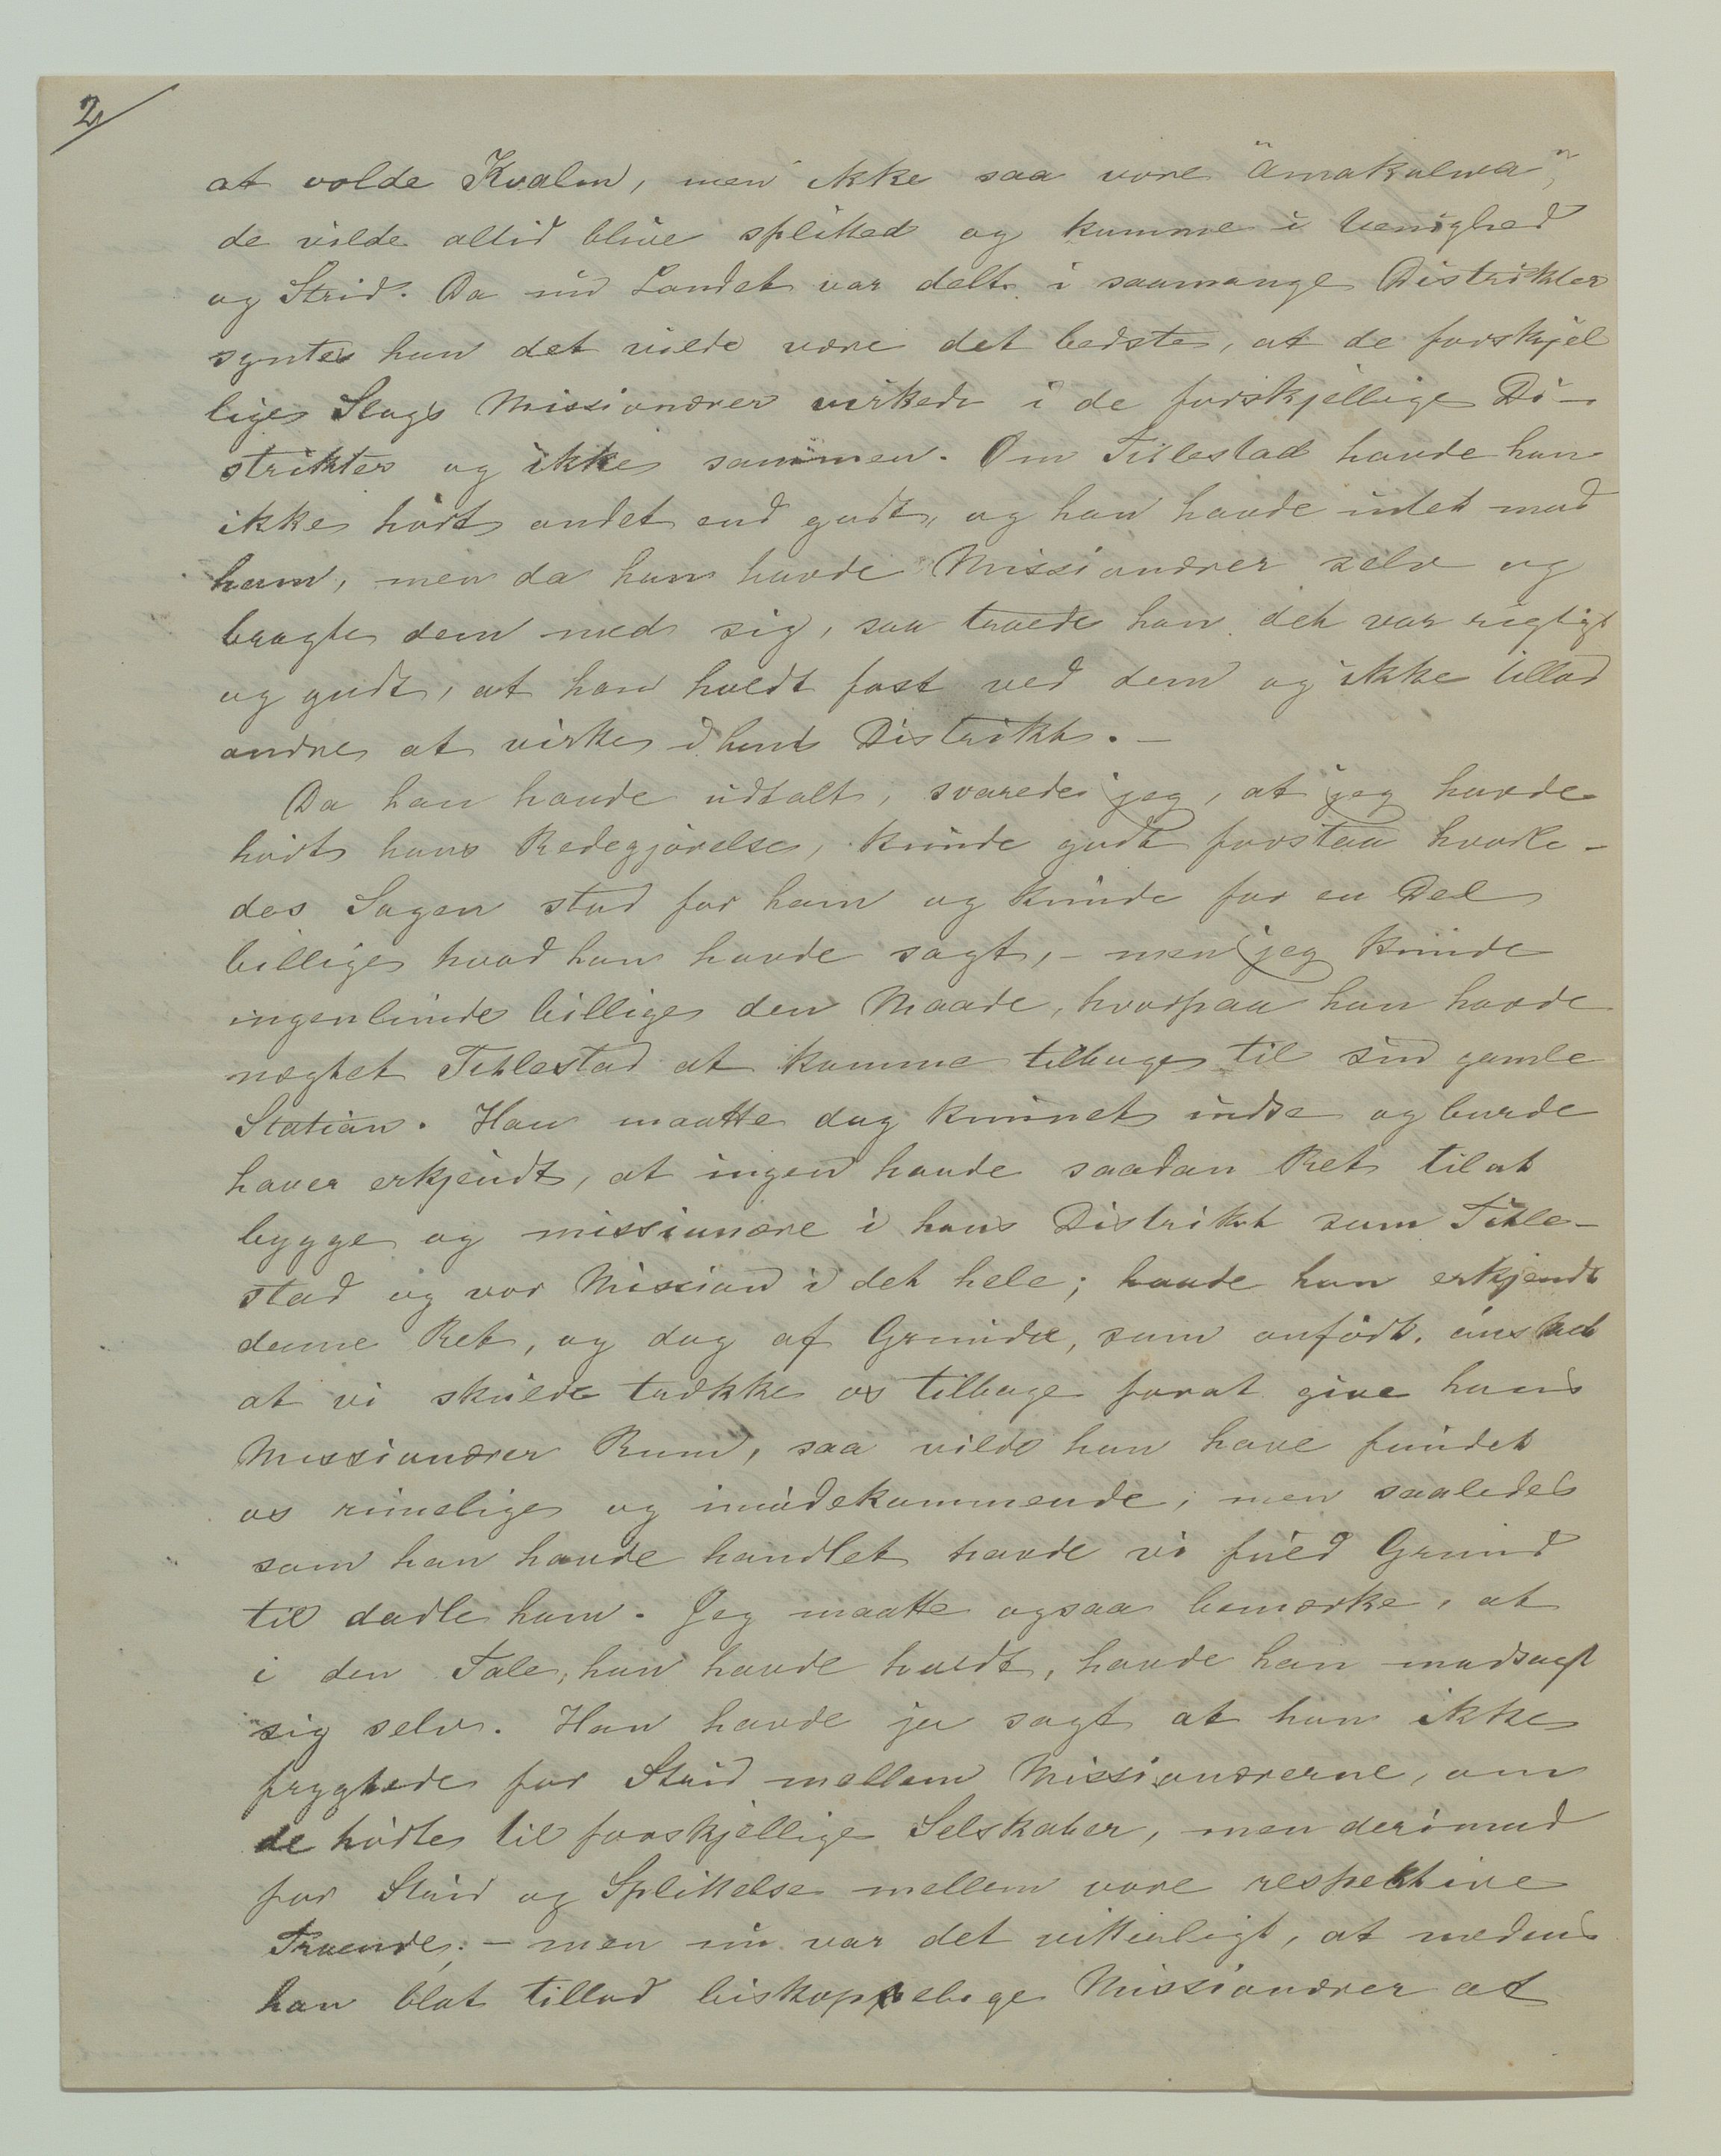 2
at volde Kvalm, men ikke saa vore "Amakalwa",
de vilde altid blive splitted og komme i Uenighed
og Strid. Da nu Landet var delt i saamange Distrikter
syntes han det vilde være det bedste, at de forskjel
lige Slags Missionærer virkede i de forskjellige Di-
strikter og ikke sammen. Om Titlestad havde han
ikke hørt andet end godt, og han havde intet mod
ham, men da han havde Missionærer selv og
bragte dem med sig, saa troede han det var rigtigt
og godt, at han holdt fast ved dem og ikke tillod
andre at virke i hans Distrikt. -
Da han havde udtalt, svarede jeg, at jeg havde
hørt hans Redegjørelse, kunde godt forstaa hvorle-
des Sagen stod for ham og kunde for en Del
billige hvad han havde sagt, - men jeg kunde
ingenlunde billige den Maade, hvorpaa han havde
nægtet Titlestad at komme tilbage til sin gamle
Station. Han maatte dog kunnet indse og burde
have erkjendt, at ingen havde saadan Ret til at
bygge og missionære i hans Distrikt som Title-
stad og vor Mission i det hele; havde han erkjendt
denne Ret, og dog af Grunde, som anført, ønsket
at vi skulde trække os tilbage forat give hans
Missionærer Rum, saa vilde han have fundet
os rimelige og imødekommende; men saaledes
som han havde handlet havde vi fuld Grund
til dadle ham. Jeg maatte ogsaa bemærke, at
i den Tale, han havde holdt, havde han modsagt
sig selv. Han havde jo sagt at han ikke
frygtede for Strid mellem Missionærerne, om
de hørte til forskjellige Selskaber, men derimod
for Strid og Splittelse mellem vore respektive
Troende; - men nu var det vitterligt, at medens
han blot tillod biskoppelige Missionærer at